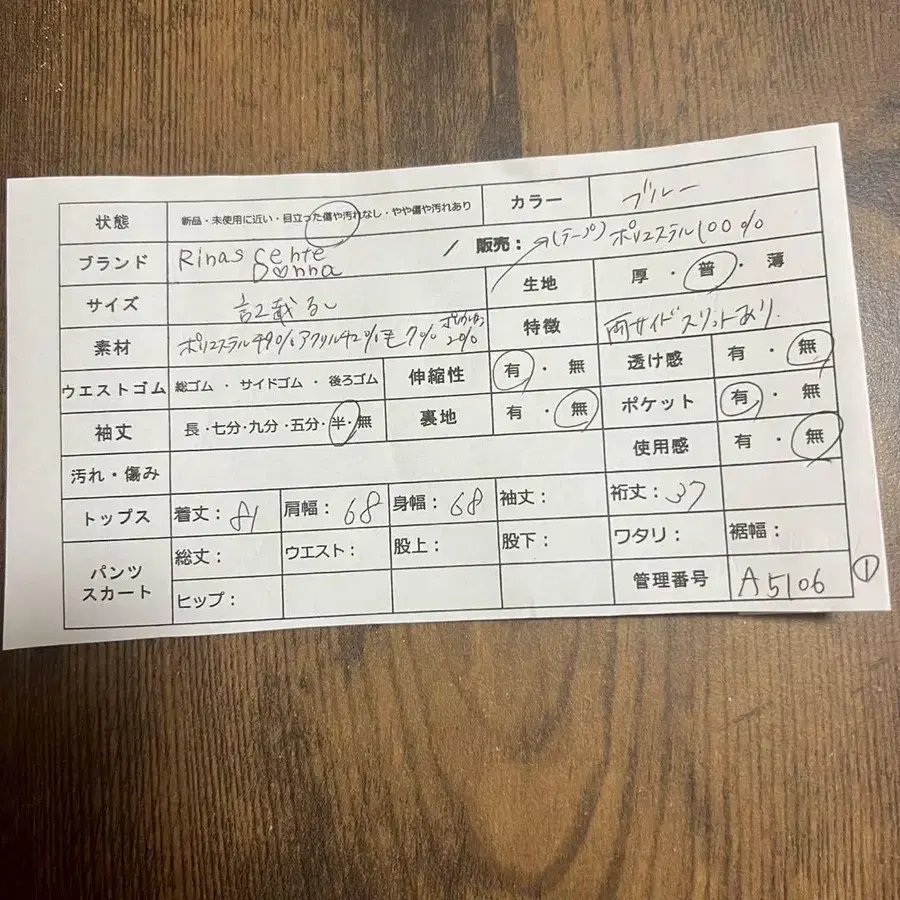 状態 新品・未使用に近い・目立った傷や汚れなし・やや傷や汚れあり カラー ブルー
ブランド Rinascente Donna / 販売: (テープ)ポリエステル100%
サイズ 記載なし 生地 厚・普・薄
素材 ポリエステル49%アクリル42%毛7%ポリウレタン2% 特徴 両サイドスリットあり.
ウエストゴム 総ゴム・サイドゴム・後ろゴム 伸縮性 有・無 透け感 有・無
袖丈 長・七分・九分・五分・半・無 裏地 有・無 ポケット 有・無
汚れ・傷み 使用感 有・無
トップス 着丈:81 肩幅:68 身幅:68 袖丈: 裄丈:37
パンツ スカート 総丈: ウエスト: 股上: 股下: ワタリ: 裾幅:
ヒップ: 管理番号 A5106 ①